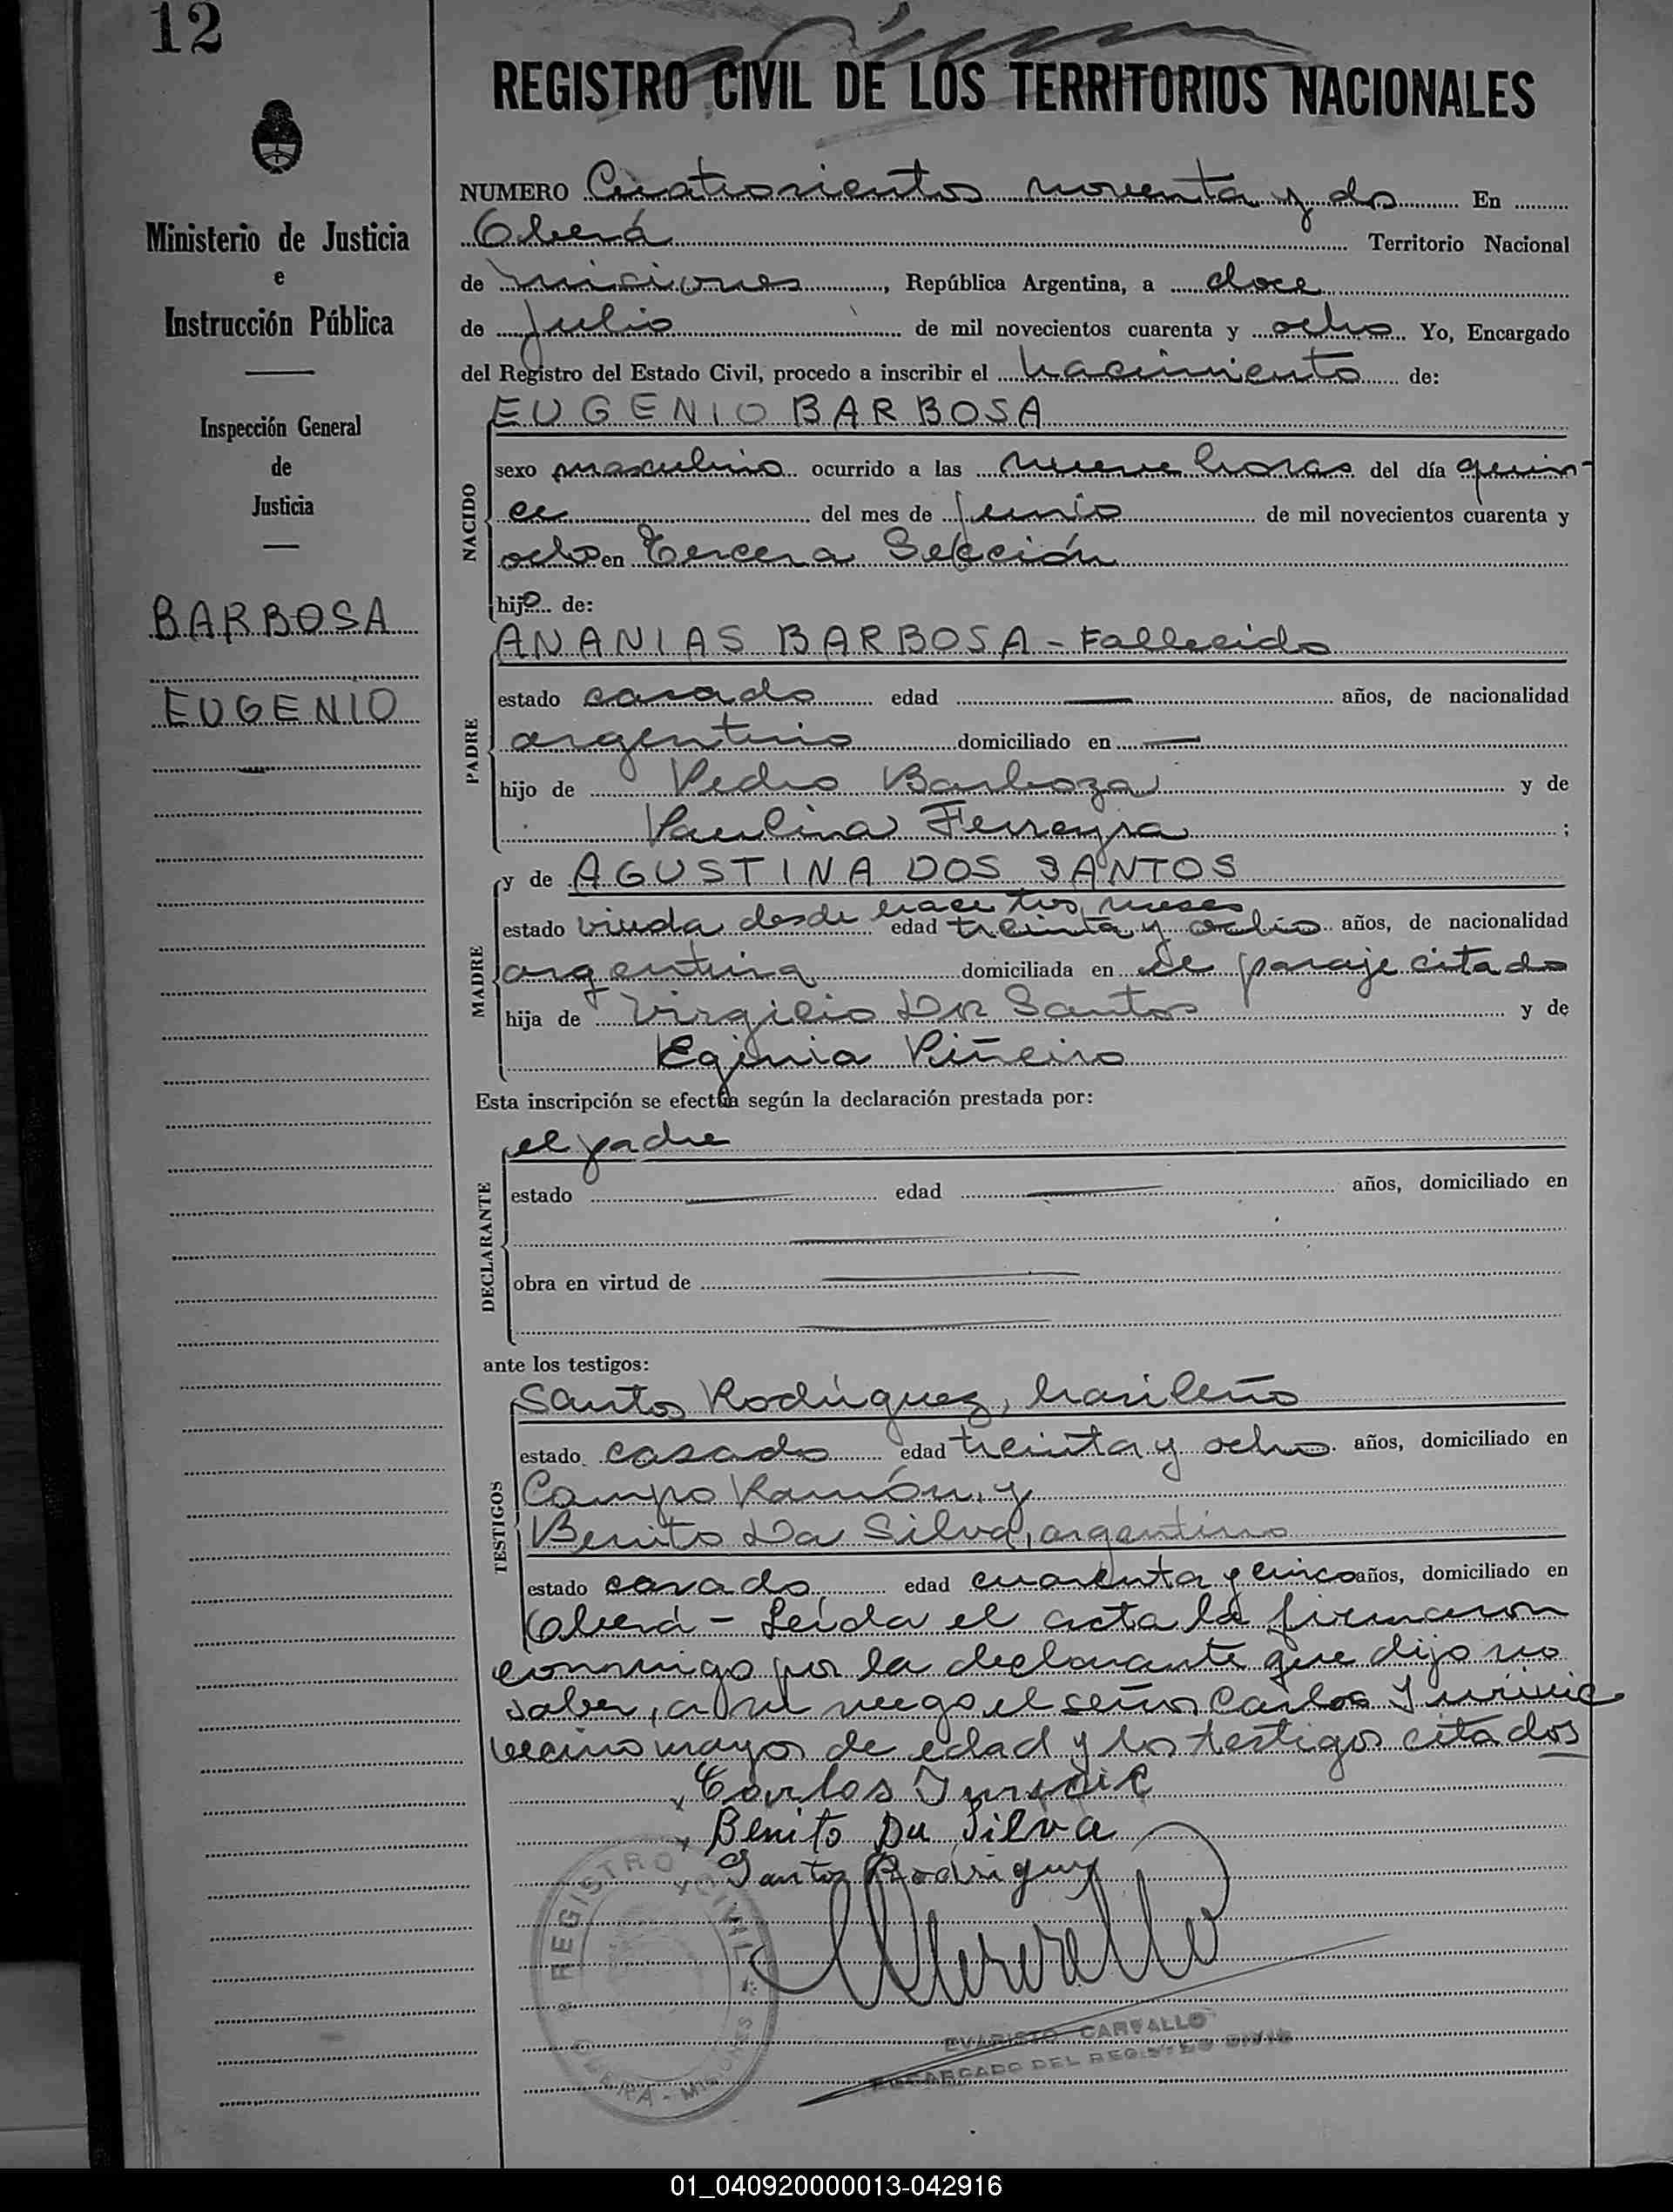 12
REGISTRO CIVIL DE LOS TERRITORIOS NACIONALES
Ministerio de Justicia
e
Instrucción Pública
Inspección General
de
Justicia
BARBOSA
EUGENIO
NUMERO Cuatrocientos noventa y dos En
Oberá Territorio Nacional
de Misiones, República Argentina, a doce
de Julio de mil novecientos cuarenta y ocho Yo, Encargado
del Registro del Estado Civil, procedo a inscribir el nacimiento de:
EUGENIO BARBOSA
NACIDO
sexo masculino ocurrido a las nueve horas del día quin-
ce del mes de Junio de mil novecientos cuarenta y
ocho en Tercera Sección
hijo de:
ANANIAS BARBOSA - Fallecido
PADRE
estado casado edad años, de nacionalidad
argentino domiciliado en
hijo de Pedro Barboza y de
Paulina Ferreyra;
y de AGUSTINA DOS SANTOS
MADRE
estado viuda desde hace tres meses edad treinta y ocho años, de nacionalidad
argentina domiciliada en el paraje citado
hija de Virgilio Dos Santos y de
Eginia Piñeiro
Esta inscripción se efectúa según la declaración prestada por:
el padre
DECLARANTE
estado edad años, domiciliado en
obra en virtud de
ante los testigos:
Santos Rodríguez, brasileño
TESTIGOS
estado casado edad treinta y ocho años, domiciliado en
Campo Ramón, y
Benito Da Silva, argentino
estado casado edad cuarenta y cinco años, domiciliado en
Oberá - Leída el acta la firmaron
conmigo por la declarante que dijo no
saber, a su ruego el señor Carlos
vecino mayor de edad y los testigos citados
Carlos
Benito Da Silva
Santos Rodriguez
REGISTRO CIVIL
MISIONES
EVARISTO CARVALLO
ENCARGADO DEL REGISTRO CIVIL
01_040920000013-042916